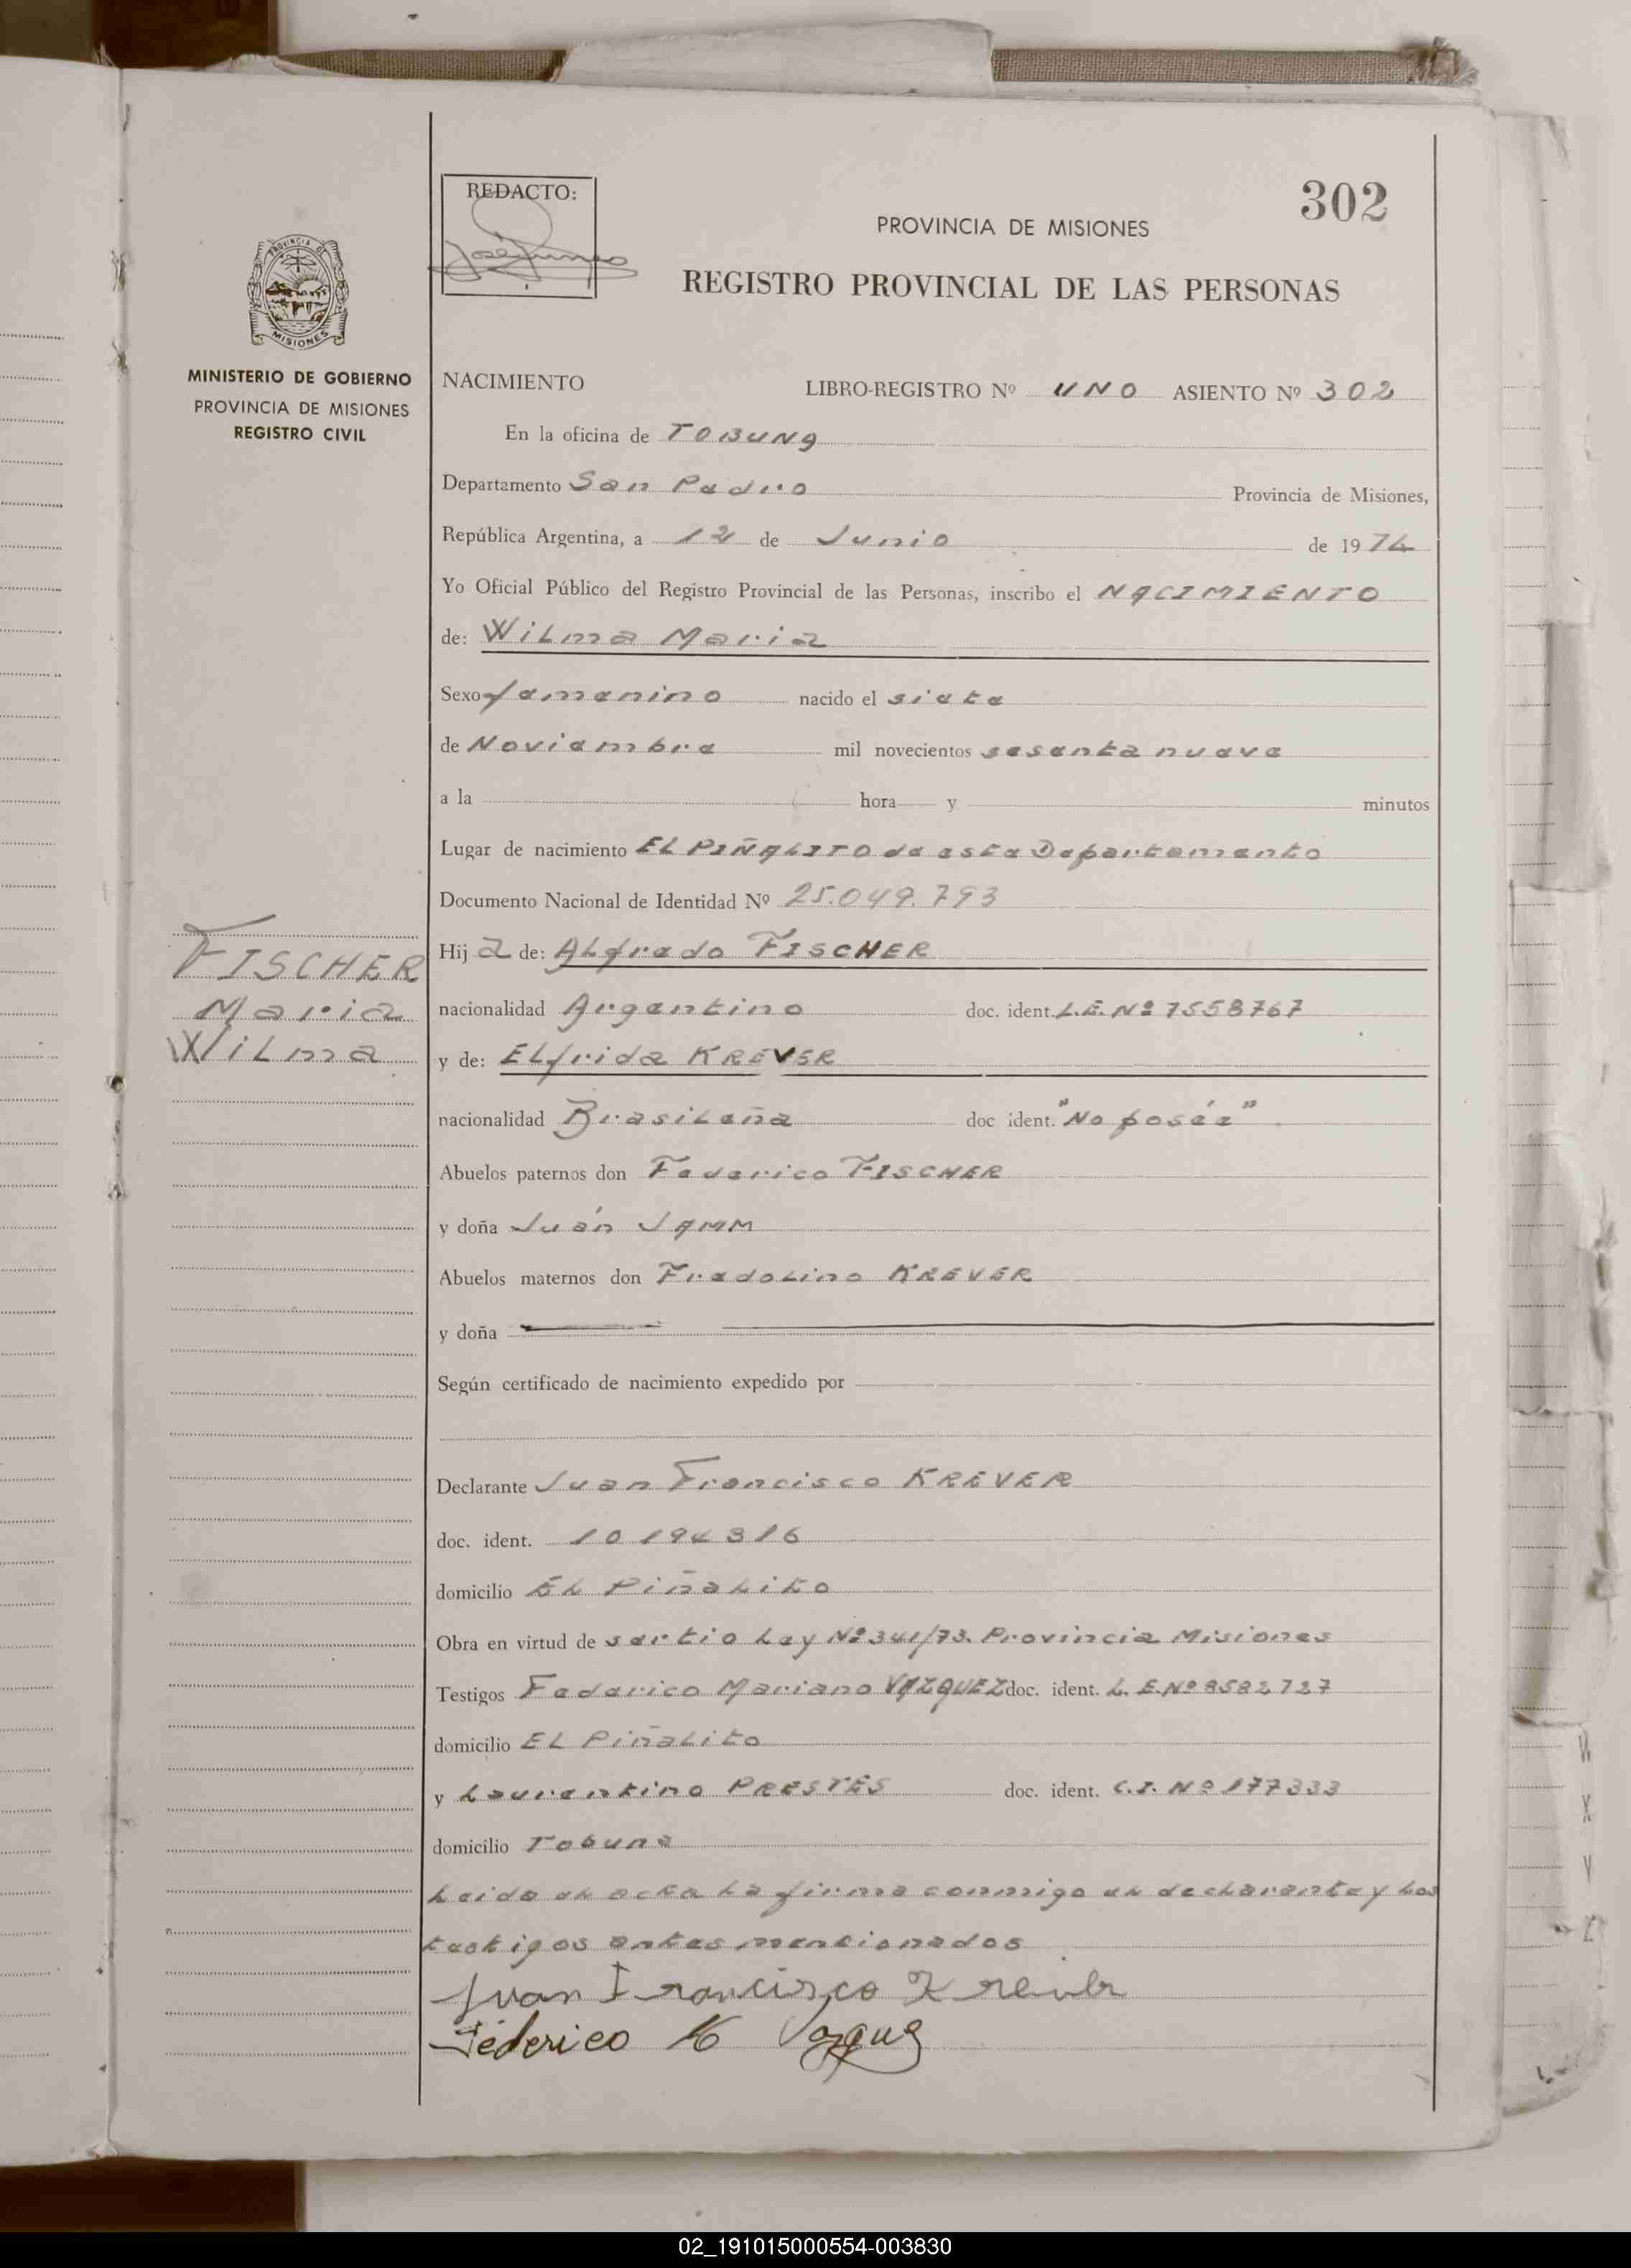 REDACTO:
302
PROVINCIA DE MISIONES
REGISTRO PROVINCIAL DE LAS PERSONAS
PROVINCIA DE MISIONES
MINISTERIO DE GOBIERNO
PROVINCIA DE MISIONES
REGISTRO CIVIL
NACIMIENTO LIBRO-REGISTRO Nº UNO ASIENTO Nº 302
En la oficina de TOBUNA
Departamento San Pedro Provincia de Misiones,
República Argentina, a 12 de Junio de 1974
Yo Oficial Público del Registro Provincial de las Personas, inscribo el NACIMIENTO
de: Wilma Maria
Sexo femenino nacido el siete
de Noviembre mil novecientos sesenta nueve
a la hora y minutos
Lugar de nacimiento EL PIÑALITO de este Departamento
Documento Nacional de Identidad Nº 25.049.793
FISCHER
Maria
Wilma
Hija de: Alfredo FISCHER
nacionalidad Argentino doc. ident. L.E. Nº 7558767
y de: Elfrida KREVER
nacionalidad Brasileña doc ident. "No poseé"
Abuelos paternos don Federico FISCHER
y doña Juán JAMM
Abuelos maternos don Fredolino KREVER
y doña
Según certificado de nacimiento expedido por
Declarante Juan Francisco KREVER
doc. ident. 10194316
domicilio El Piñalito
Obra en virtud de sertio Ley Nº 341/73. Provincia Misiones
Testigos Federico Mariano VAZQUEZ doc. ident. L. E. Nº 8582727
domicilio EL Piñalito
y Laurentino PRESTES doc. ident. C.I. Nº 177333
domicilio Tobuna
Leida el acta la firma conmigo el declarante y los
testigos antes mencionados
Juan Francisco Kreiver
Féderico M Vazquez
W
X
Y
Z
02_191015000554-003830